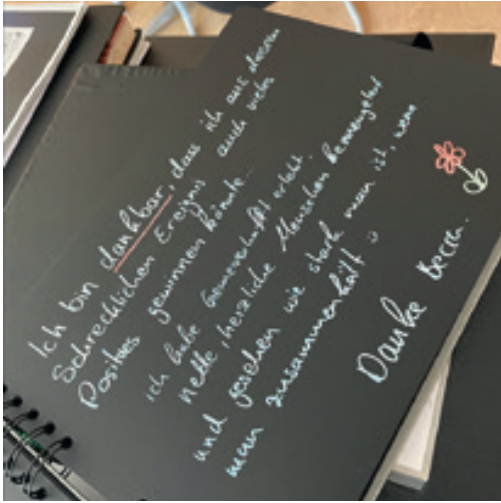 Ich bin dankbar, dass ich aus diesem
Schrecklichen Ereignis auch viele
Positives gewinnen könnte...
ich habe Gemeinschaft erlebt.
nette, herzliche Menschen kennengelernt
und gesehen wie stark man ist, wenn
man zusammenhält
Danke